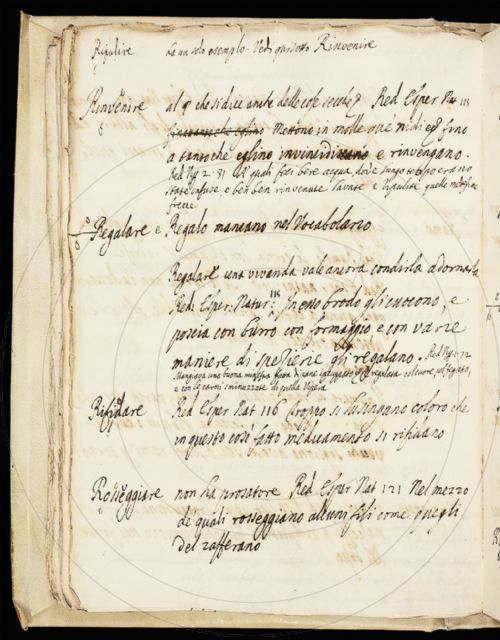 Ripulire ha un solo esempio. Vedi qui sotto Rinvenire
Rinvenire al § che si dice anche delle cose secche § Red Esper Nat 115
Mettono in molle que' nidi e fino
a tanto che invincidi e rinvengano.
Red Vip 2. 31 A' quali feci bere acqua, dove lungo tempo erano
state infuse, e ben ben rinvenute lavate e ripulite quelle medesime
frecce
Regalare e Regalo mancano nel Vocabolario
Regalare una vivanda vale ancora condirla adornarla
Red: Esper: Natur: 115 in esso brodo gli cuocono, e
poscia con burro con formaggio e con varie
maniere di spezierie gli regalano. Red Vip 1. 72
Mangiava una buona minestra fatta di pane inzuppato e regalata col cuore, col fegato,
e con le carni sminuzzate di quella Vipera
Rifidare Red Esper Nat 116 troppo si lusingano coloro che
in questo così fatto medicamento si rifidano
Rosseggiare non ha prosatore Red Esper Nat 121 Nel mezzo
de quali rosseggiano alcuni fili come quegli
del zafferano